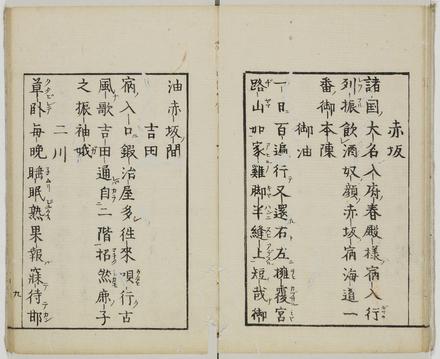 赤坂
諸国大名入府春殿様宿入行
列振飲酒奴顔赤坂宿海道一
番御本陣
御油
一日百遍行又還右左擁覆宮
路山如家雞脚半縫上短哉御
油赤坂間
吉田
宿入口鍛冶屋多往来唄行古
風歌吉田通自二階招然廊子
之振袖娥
二川
草臥毎晩瞻眠熟果報寐待邯
九